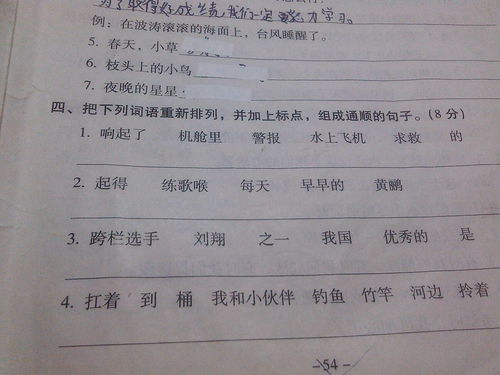 为了取得好成绩,我们一定努力学习。
例：在波涛滚滚的海面上，台风睡醒了。
5. 春天，小草
6. 枝头上的小鸟
7. 夜晚的星星
四、把下列词语重新排列，并加上标点，组成通顺的句子。(8 分)
1. 响起了 机舱里 警报 水上飞机 求救 的
2. 起得 练歌喉 每天 早早的 黄鹂
3. 跨栏选手 刘翔 之一 我国 优秀的 是
4. 扛着 到 桶 我和小伙伴 钓鱼 竹竿 河边 拎着
-54-